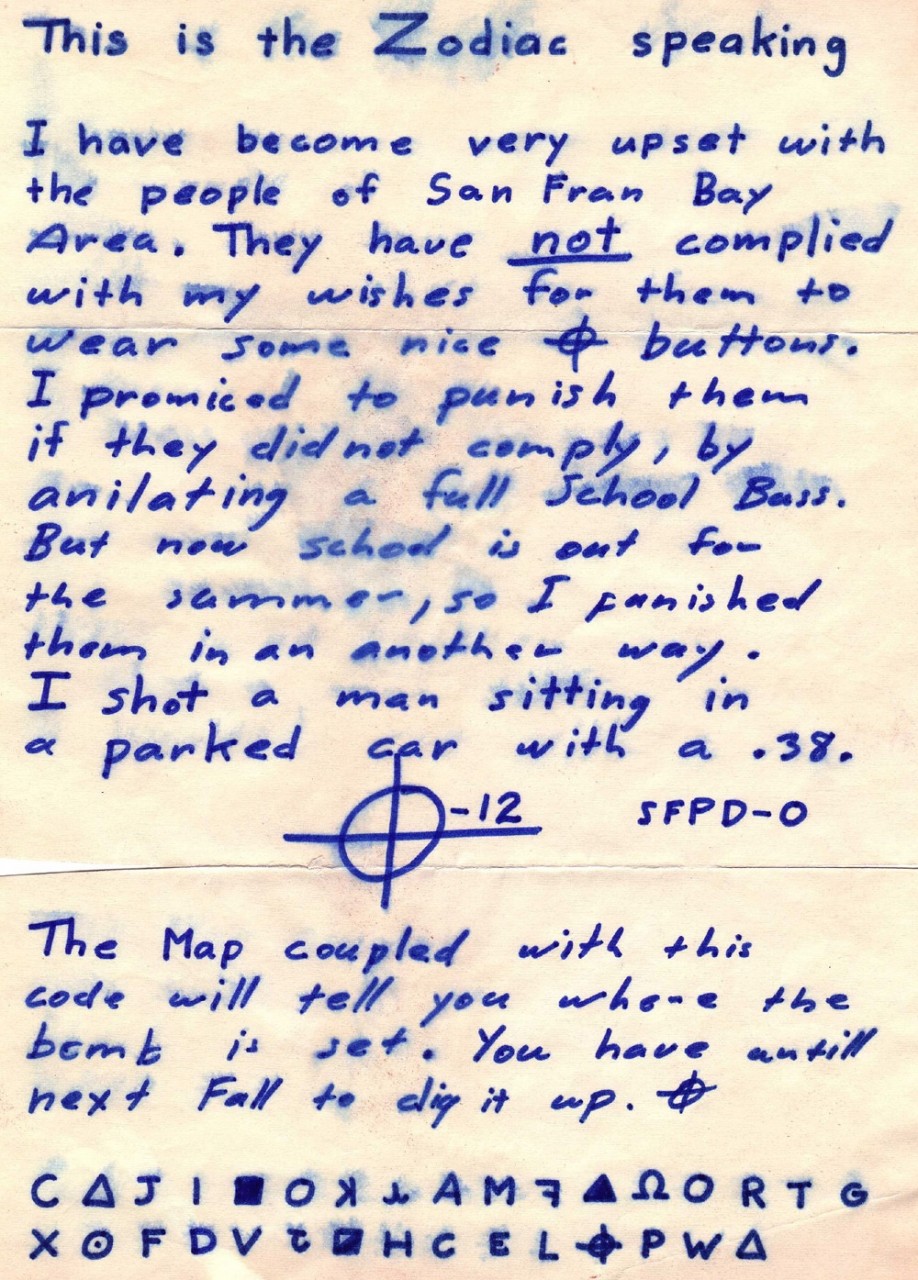 This is the Zodiac speaking
I have become very upset with
the people of San Fran Bay
Area. They have not complied
with my wishes for them to
wear some nice ⌖ buttons.
I promiced to punish them
if they did not comply, by
anilating a full School Buss.
But now school is out for
the summer, so I punished
them in an another way.
I shot a man sitting in
a parked car with a .38.
⌖-12 SFPD-0
The Map coupled with this
code will tell you where the
bomb is set. You have untill
next Fall to dig it up. ⌖
C Δ J I ■ O ꓘ ⅄ A M ꟻ ▲ Ω O R T G
X ⊙ F D V ⱷ H C E L ⌖ P W Δ